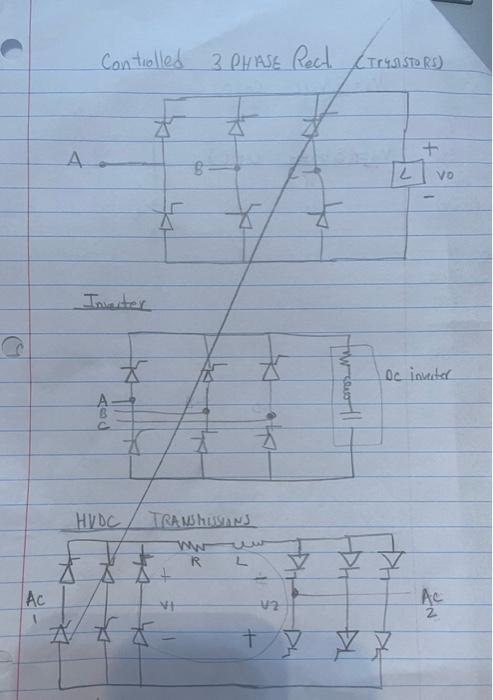 Controlled 3 PHASE Rect. (TRYSISTORS)
A
B
C
L
+
VO
-
Inverter
A
B
C
DC inverter
HVDC TRANSMISSIONS
R
L
AC
1
+
V1
-
-
V2
+
AC
2